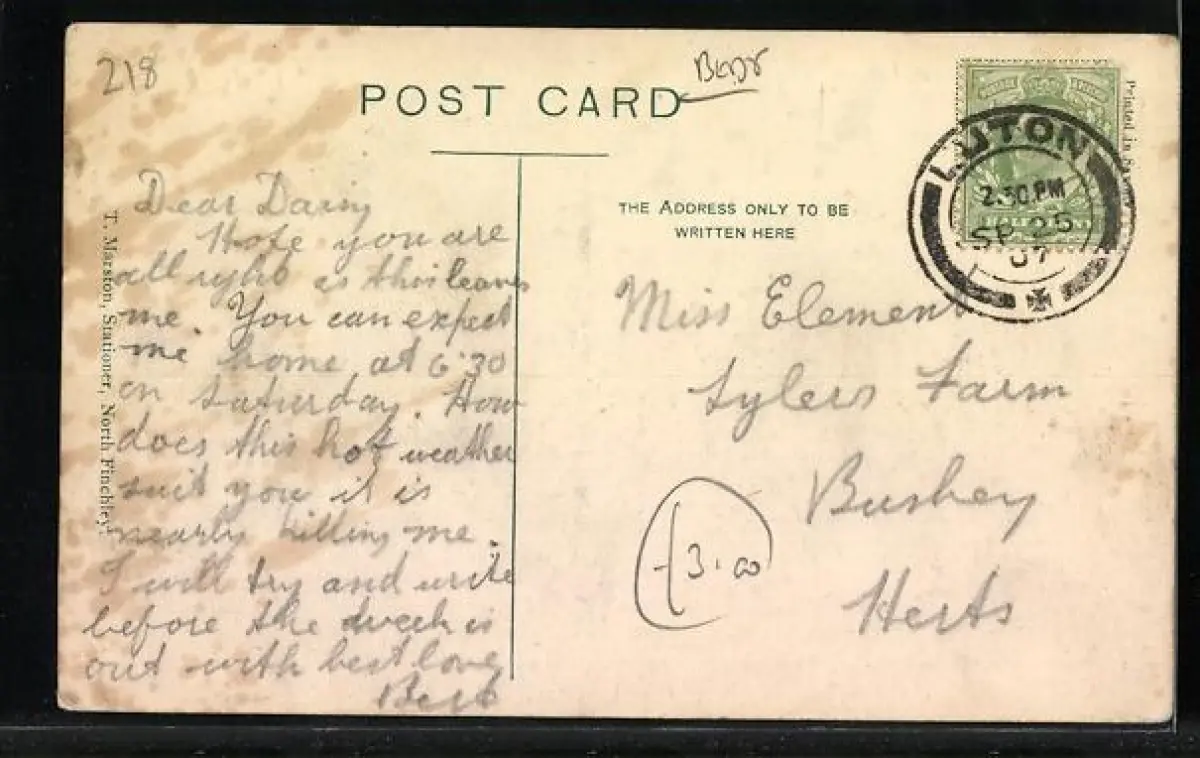 218
POST CARD
T. Marston, Stationer, North Finchley
Dear Daisy
Hope you are
all right as this leaves
me. You can expect
me home at 6.30
on Saturday. How
does this hot weather
suit you it is
nearly killing me.
I will try and write
before the week is
out with best love
Bert
THE ADDRESS ONLY TO BE
WRITTEN HERE
Miss Element
Tylers Farm
Bushey
Herts
3.00
LUTON
2.30 PM
SP 25
07
Printed in